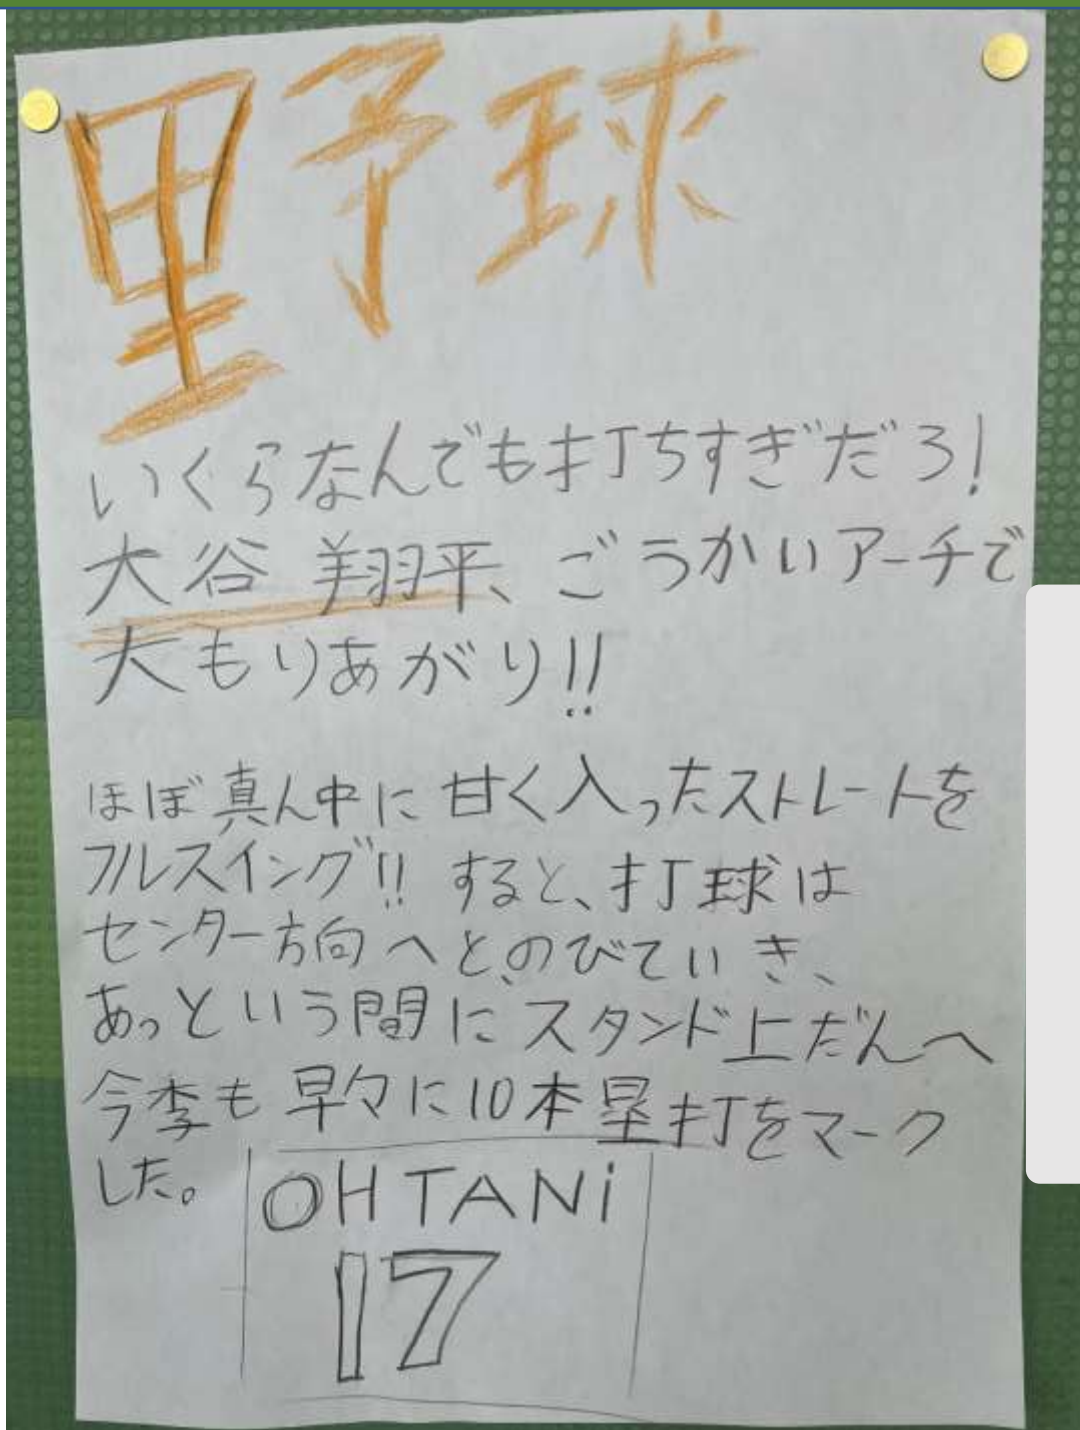 野球
いくらなんでも打ちすぎだろ!
大谷 翔平、ごうかいアーチで
大もりあがり!!
ほぼ真ん中に甘く入ったストレートを
フルスイング!! すると、打球は
センター方向へと、のびていき、
あっという間にスタンド上だんへ
今季も早々に10本塁打をマーク
した。
OHTANi
17